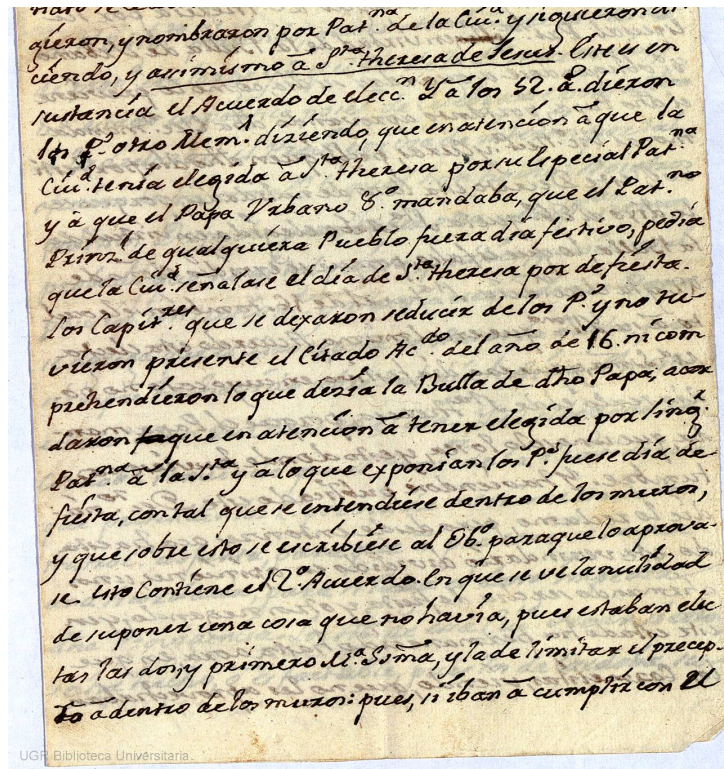 gieron, y nombraron por Pat.na de la Ciu.d y siguieron di
ciendo, y assimismo â S.ta theresa de Jesus. Este es en
sustancia el Acuerdo de elecc.n Y a los 52. â. dieron
los P.s otro Mem.l diziendo, que en atencion â que la
Ciu.d tenia elegida â S.ta theresa por su Especial Pat.na
y â que el Papa Vrbano 8.º mandaba, que el Pat.no
Prinz.l de qualquiera Pueblo fuera dia festivo, pedia
que la Ciu.d señalase el dia de S.ta theresa por de fiesta.
los Capit.res que se dexaron seducir de los P.s y no tu-
vieron presente el Citado Ac.do del año de 16. ni com
prehendieron lo que dezia la Bulla de dho Papa, acor
daron que en atencion â tener elegida por sing.r
Pat.na â la S.ta y â lo que exponian los P.s fuese dia de
fiesta, con tal que se entendiese dentro de los muros,
y que sobre esto se escribiese al Ob.º para que lo aprova-
se esto Contiene el 2.º Acuerdo. En que se ve la nulidad
de suponer una cosa que no havia, pues estaban elec
tas las dos, y primero M.a SSma, y la de limitar el precep-
to â dentro de los muros: pues, si iban â cumplir con el
UGR Biblioteca Universitaria.